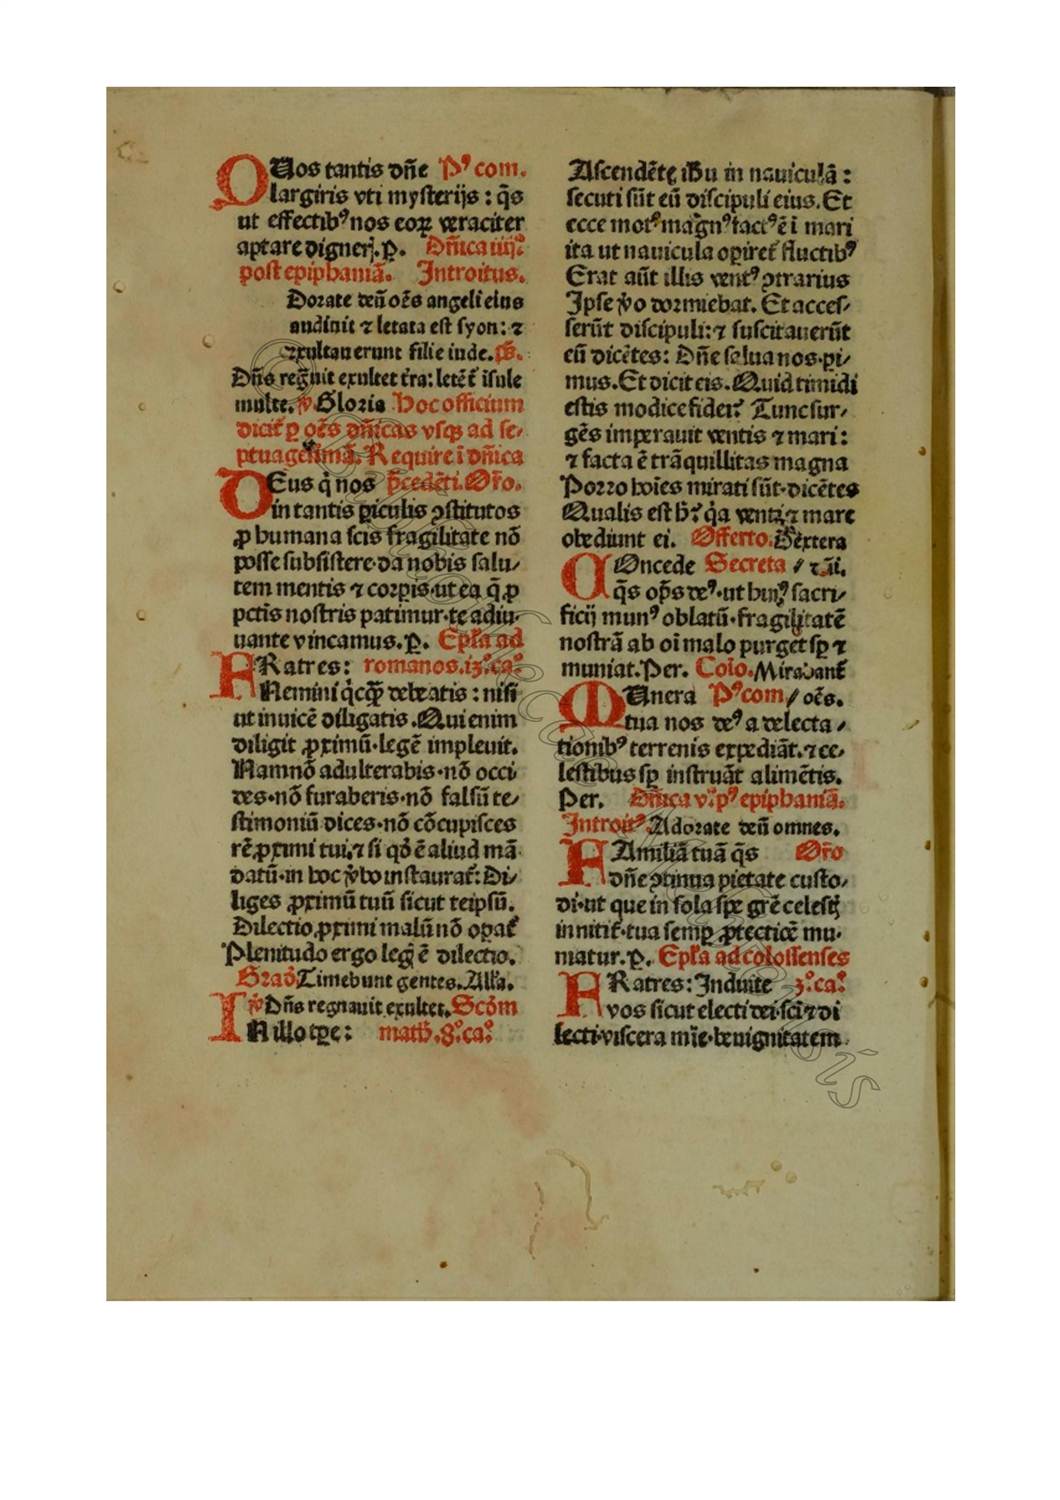 QUos tantis dñe Pꝰ com.
largiris vti mysterijs : q̃s
ut effectibꝰ nos eoꝝ veraciter
aptare digneꝛ̣. ꝑ. Dñica iiijª
post epiphaniã. Introitus.
Dorate deũ oẽs angeli eius
audiuit ⁊ letata est syon: ⁊
exultauerunt filie iude. p̃s.
Dñs regñuit exultet t̃ra: letẽt̃ isule
multe. v̾ Gloria Hoc officium
dicit̃ ꝑ oẽs dñicas vsqꝫ ad se-
ptuagesimã. Require ĩ dñica
DEus q̇ nos p̃cedẽti. Or̃o.
in tantis ꝑiculis ꝯstitutos
ꝓ humana scis fragilitate nõ
posse subsistere· da nobis salu/
tem mentis ⁊ corpis· ut ea q̃ ꝓ
pctĩs nostris patimur· te adiu-
uante vincamus. ꝑ. Epl̃a ad
FRatres: romanos. 13.º ca.º
Nemini q̇cqꝫ debeatis : nisi
ut inuicẽ diligatis. Qui enim
diligit ꝓximũ· legẽ impleuit.
Nam nõ adulterabis· nõ occi
des· nõ furaberis· nõ falsũ te/
stimoniũ dices· nõ cõcupisces
rẽ ꝓximi tui, ⁊ si qḋ ẽ aliud mã
datũ· in hoc v̾bo instaurat̃: Di/
liges ꝓximũ tuũ sicut teipsũ.
Dilectio ꝓximi malũ nõ oꝑat̃
Plenitudo ergo legꝭ ẽ dilectio.
Graḋ. Timebunt gentes. All'a.
v̾ Dñs regnauit exultet. Scḋm
INillo tꝑe: math. 8.º ca.º
Ascendẽte ihũ in nauiculã :
secuti sũt eũ discipuli eius. Et
ecce motꝰ magñꝰ factꝰ ẽ ĩ mari
ita ut nauicula oꝑiret̃ fluctibꝰ
Erat aũt illis ventꝰ ꝯtrarius
Ipse v̾o dormiebat. Et acces/
serũt discipuli: ⁊ suscitauerũt
eũ dicẽtes: Dñe salua nos· pi/
mus. Et dicit eis. Quid timidi
estis modice fidei? Tunc sur/
gẽs imperauit ventis ⁊ mari:
⁊ facta ẽ trãquillitas magna
Porro hoĩes mirati sũt· dicẽtes
Qualis est h̃? q̇a venti ⁊ mare
obediunt ei. Offerto. Dextera
COncede Secreta / dñi.
q̃s op̃s deꝰ· ut huiꝰ sacri/
ficij munꝰ oblatũ· fragilitatẽ
nostrã ab oĩ malo purget sꝑ ⁊
muniat. Per. Coĩo. Mirabant̃
MUnera Pꝰ com / oẽs.
tua nos deꝰ a delecta /
tionibꝰ terrenis expediãt. ⁊ ce/
lestibus sꝑ instruãt alimẽtis.
Per. Dñica v.ª pꝰ epiphaniã.
Introitꝰ. Adorate deũ omnes.
FAmiliã tuã q̃s Or̃o
dñe ꝯtinua pietate custo/
di· ut que in sola spe gr̃e celestꝭ
innitit̃· tua semꝑ ꝓtectiõe mu-
niatur. ꝑ. Epl̃a ad colossenses
FRatres: Induite 3.º ca.º
vos sicut electi dei· sc̃i ⁊ di
lecti· viscera mĩe· benignitatem